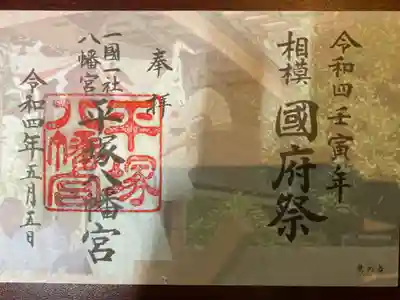 令和四壬寅年
相模 國府祭
奉拝
一國一社
八幡宮
平塚八幡宮
平塚八幡宮
令和四年五月五日